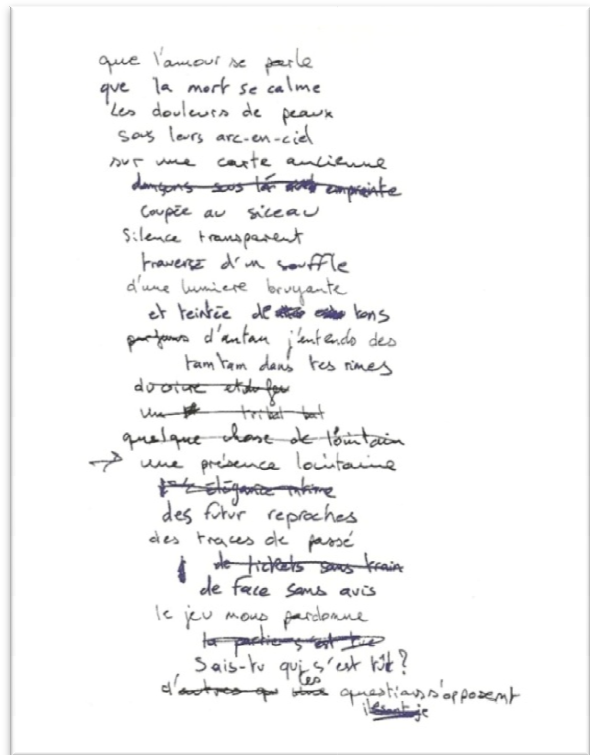 que l'amour se parle
que la mort se calme
Les douleurs de peaux
sous leurs arc-en-ciel
sur une carte ancienne
dansons sous la empreinte
coupée au siceau
Silence transparent
traversé d'un souffle
d'une lumiere bruyante
et teintée de tons
parfums d'antan j'entends des
tam tam dans tes rimes
du cuivre et du feu
un tribal bat
quelque chose de lointain
une présence lointaine
élégance intime
des futur reproches
des traces de passé
de tickets sans train
de face sans avis
le jeu nous pardonne
la partie s'est tue
Sais-tu qui s'est tût?
d'autres questions s'opposent